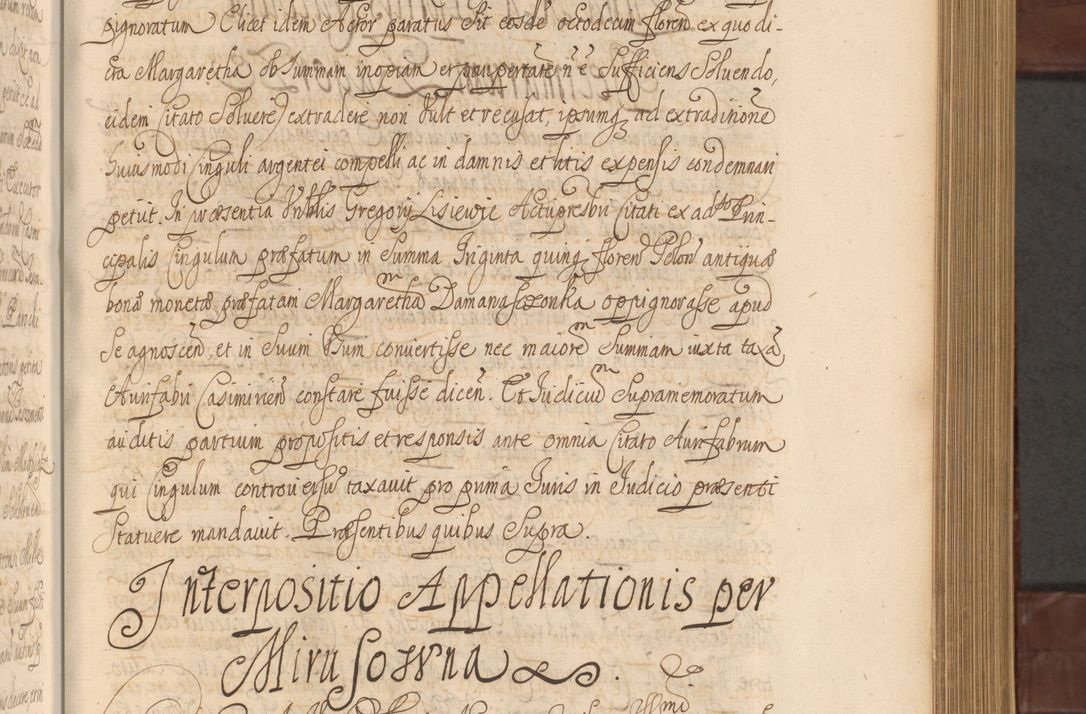 pignoratum Elicet idem Actor paratus sit eosdē octodecim floreñ ex quo di-
cta Margaretha ob summam inopiam et paupertatē n̄ ē sufficiens soluendo,
eidem Citato soluere) extradere non vult et recusat, ipsumq ad extraditionē
huiusmodi Cinguli argentei compelli ac in damnis et litis expensis condemnari
petiit. In præsentia Nobilis Gregorij Lisiewic Actu presbri Citati ex adto Prin-
cipalis Cingulum præfatum in summa Triginta quinq floreñ Polon antiquæ
bonæ monetæ præfatam Margaretham Damanaszowka oppignorasse apud
se agnosceñ, et in suum Usum convertisse nec maiorem summam iuxta taxā
Aurifabri Casimirieñ constare fuisse diceñ. Et Iudicium supramemoratum
auditis partium propositis et responsis ante omnia Citato Aurifabrum
qui Cingulum controversū taxavit pro prima Iuris in Iudicio præsenti
statuere mandavit. Præsentibus quibus supra.
Interpositio Appellationis per
Mirussowna